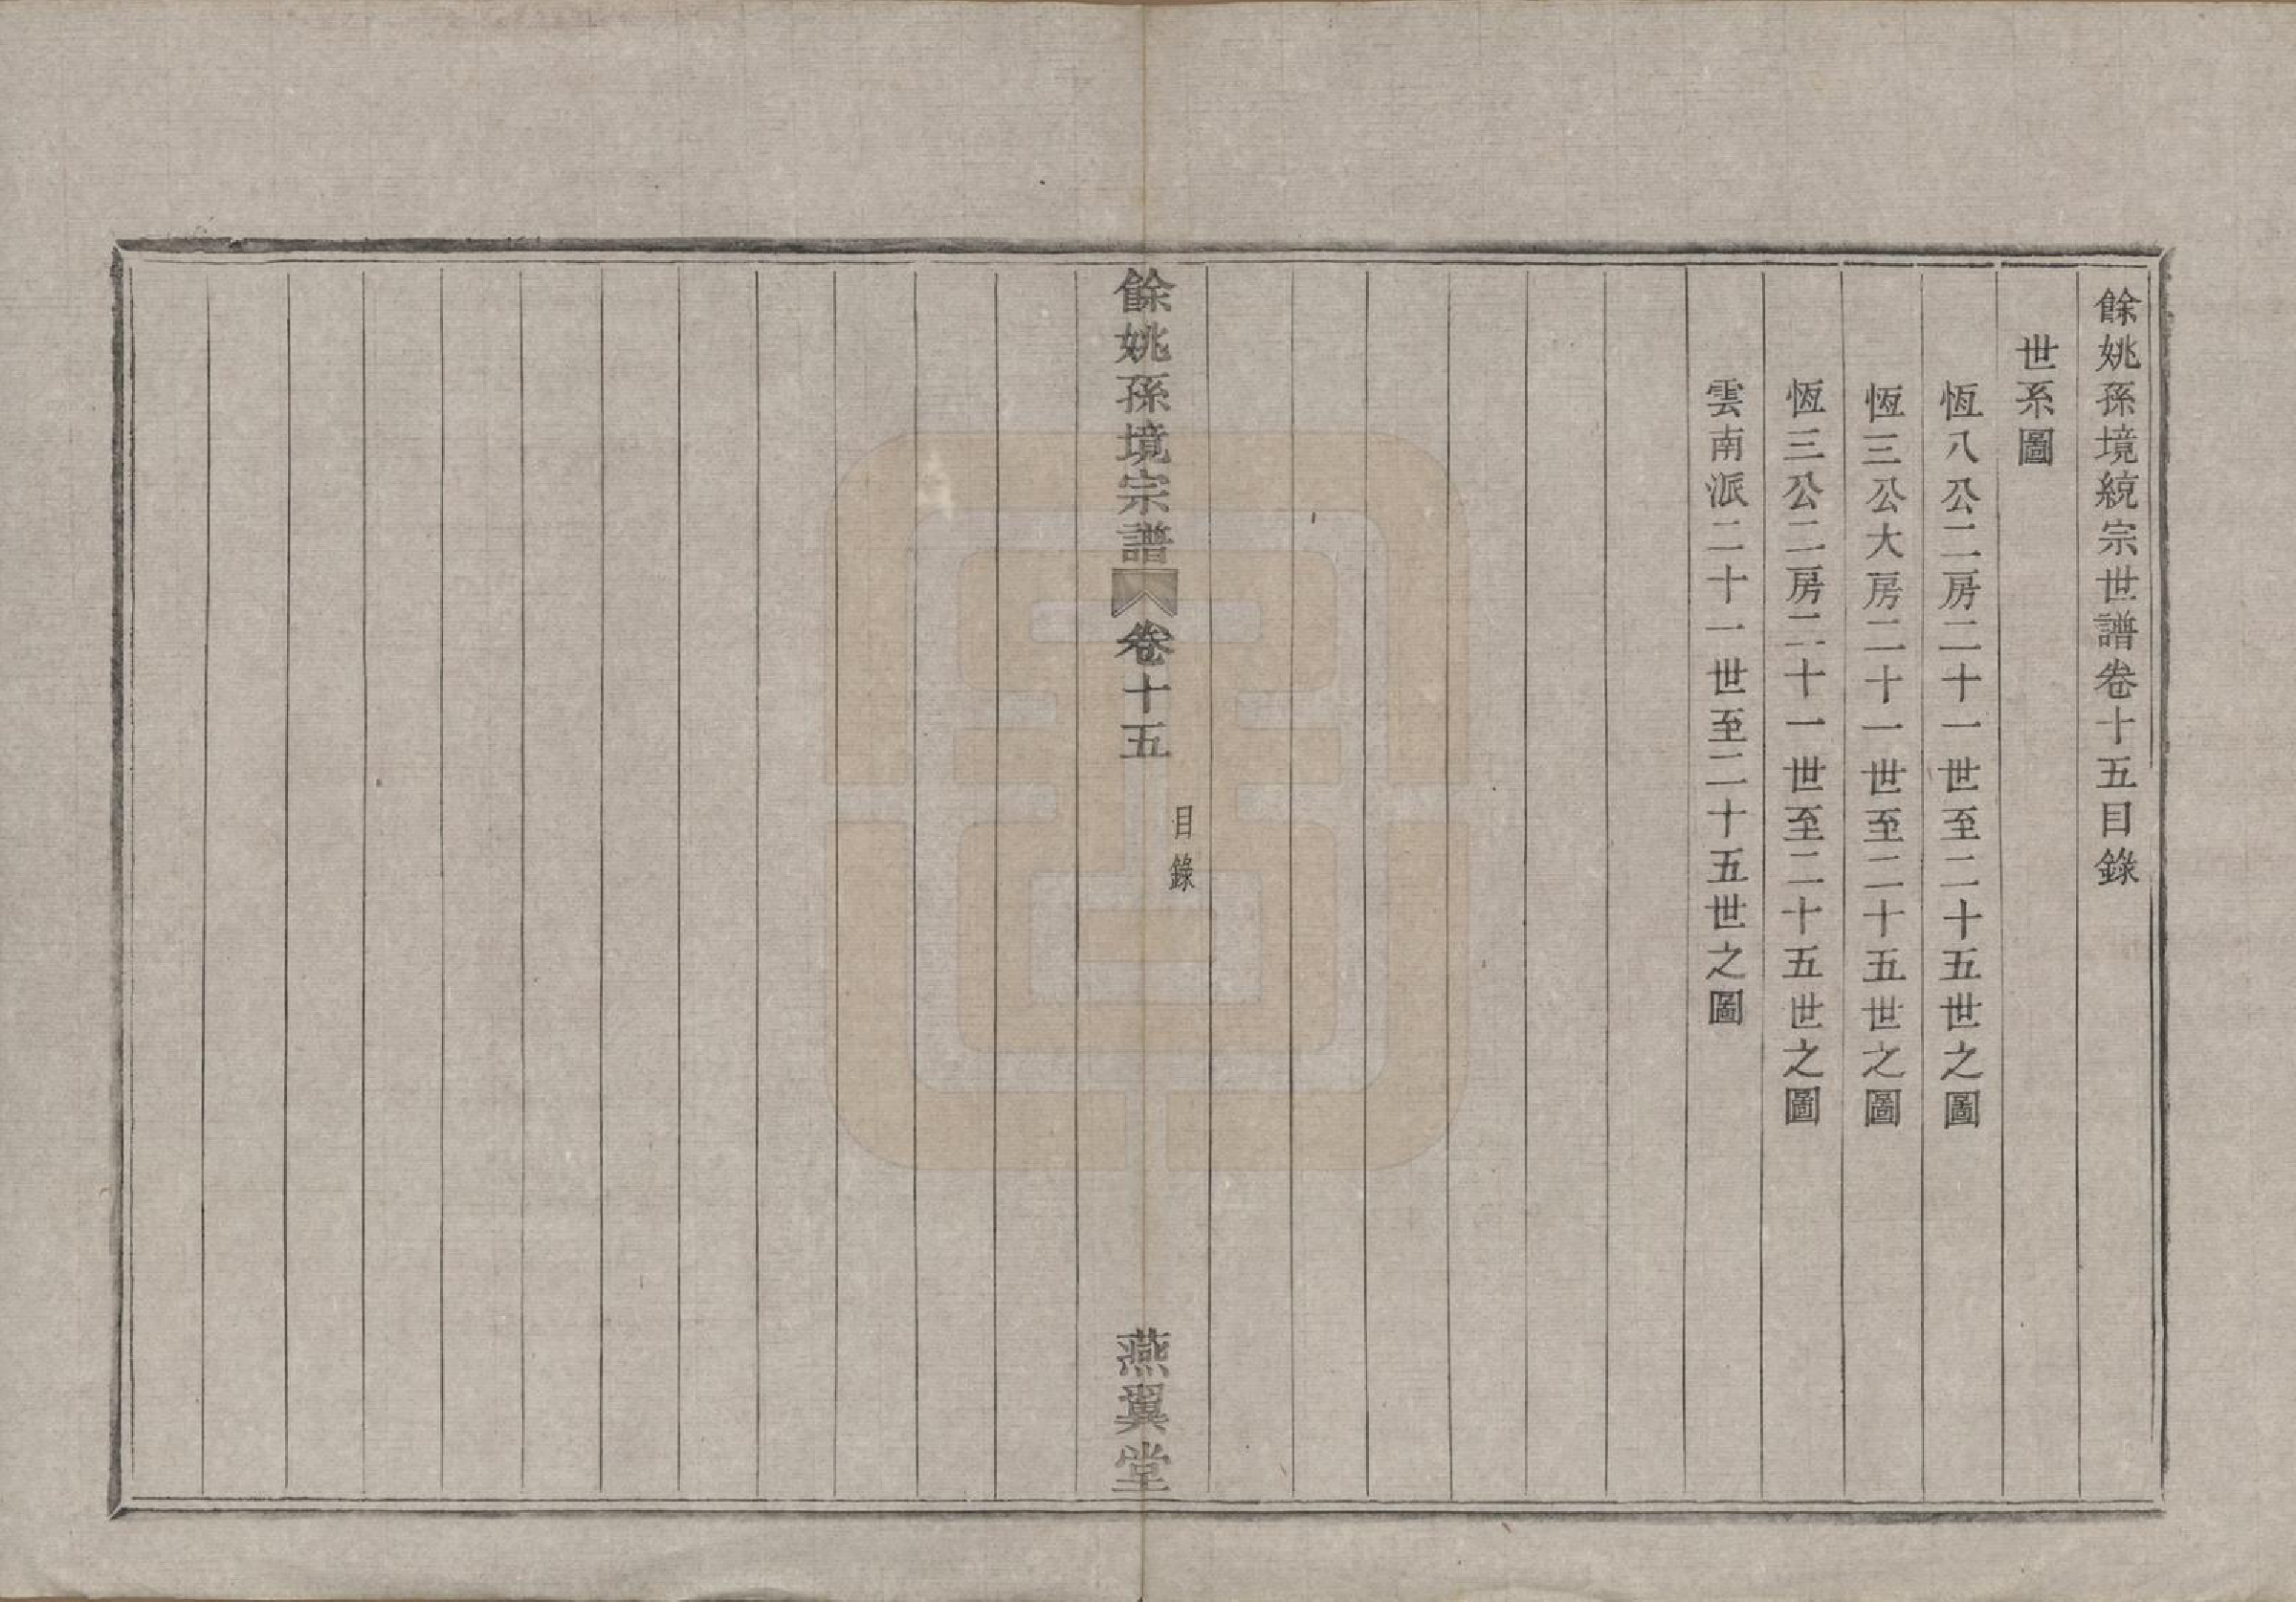 餘姚孫境統宗世譜卷十五目錄
世系圖
恆八公二房二十一世至二十五世之圖
恆三公大房二十一世至二十五世之圖
恆三公二房二十一世至二十五世之圖
雲南派二十一世至二十五世之圖
餘姚孫境宗譜
卷十五
目錄
燕翼堂